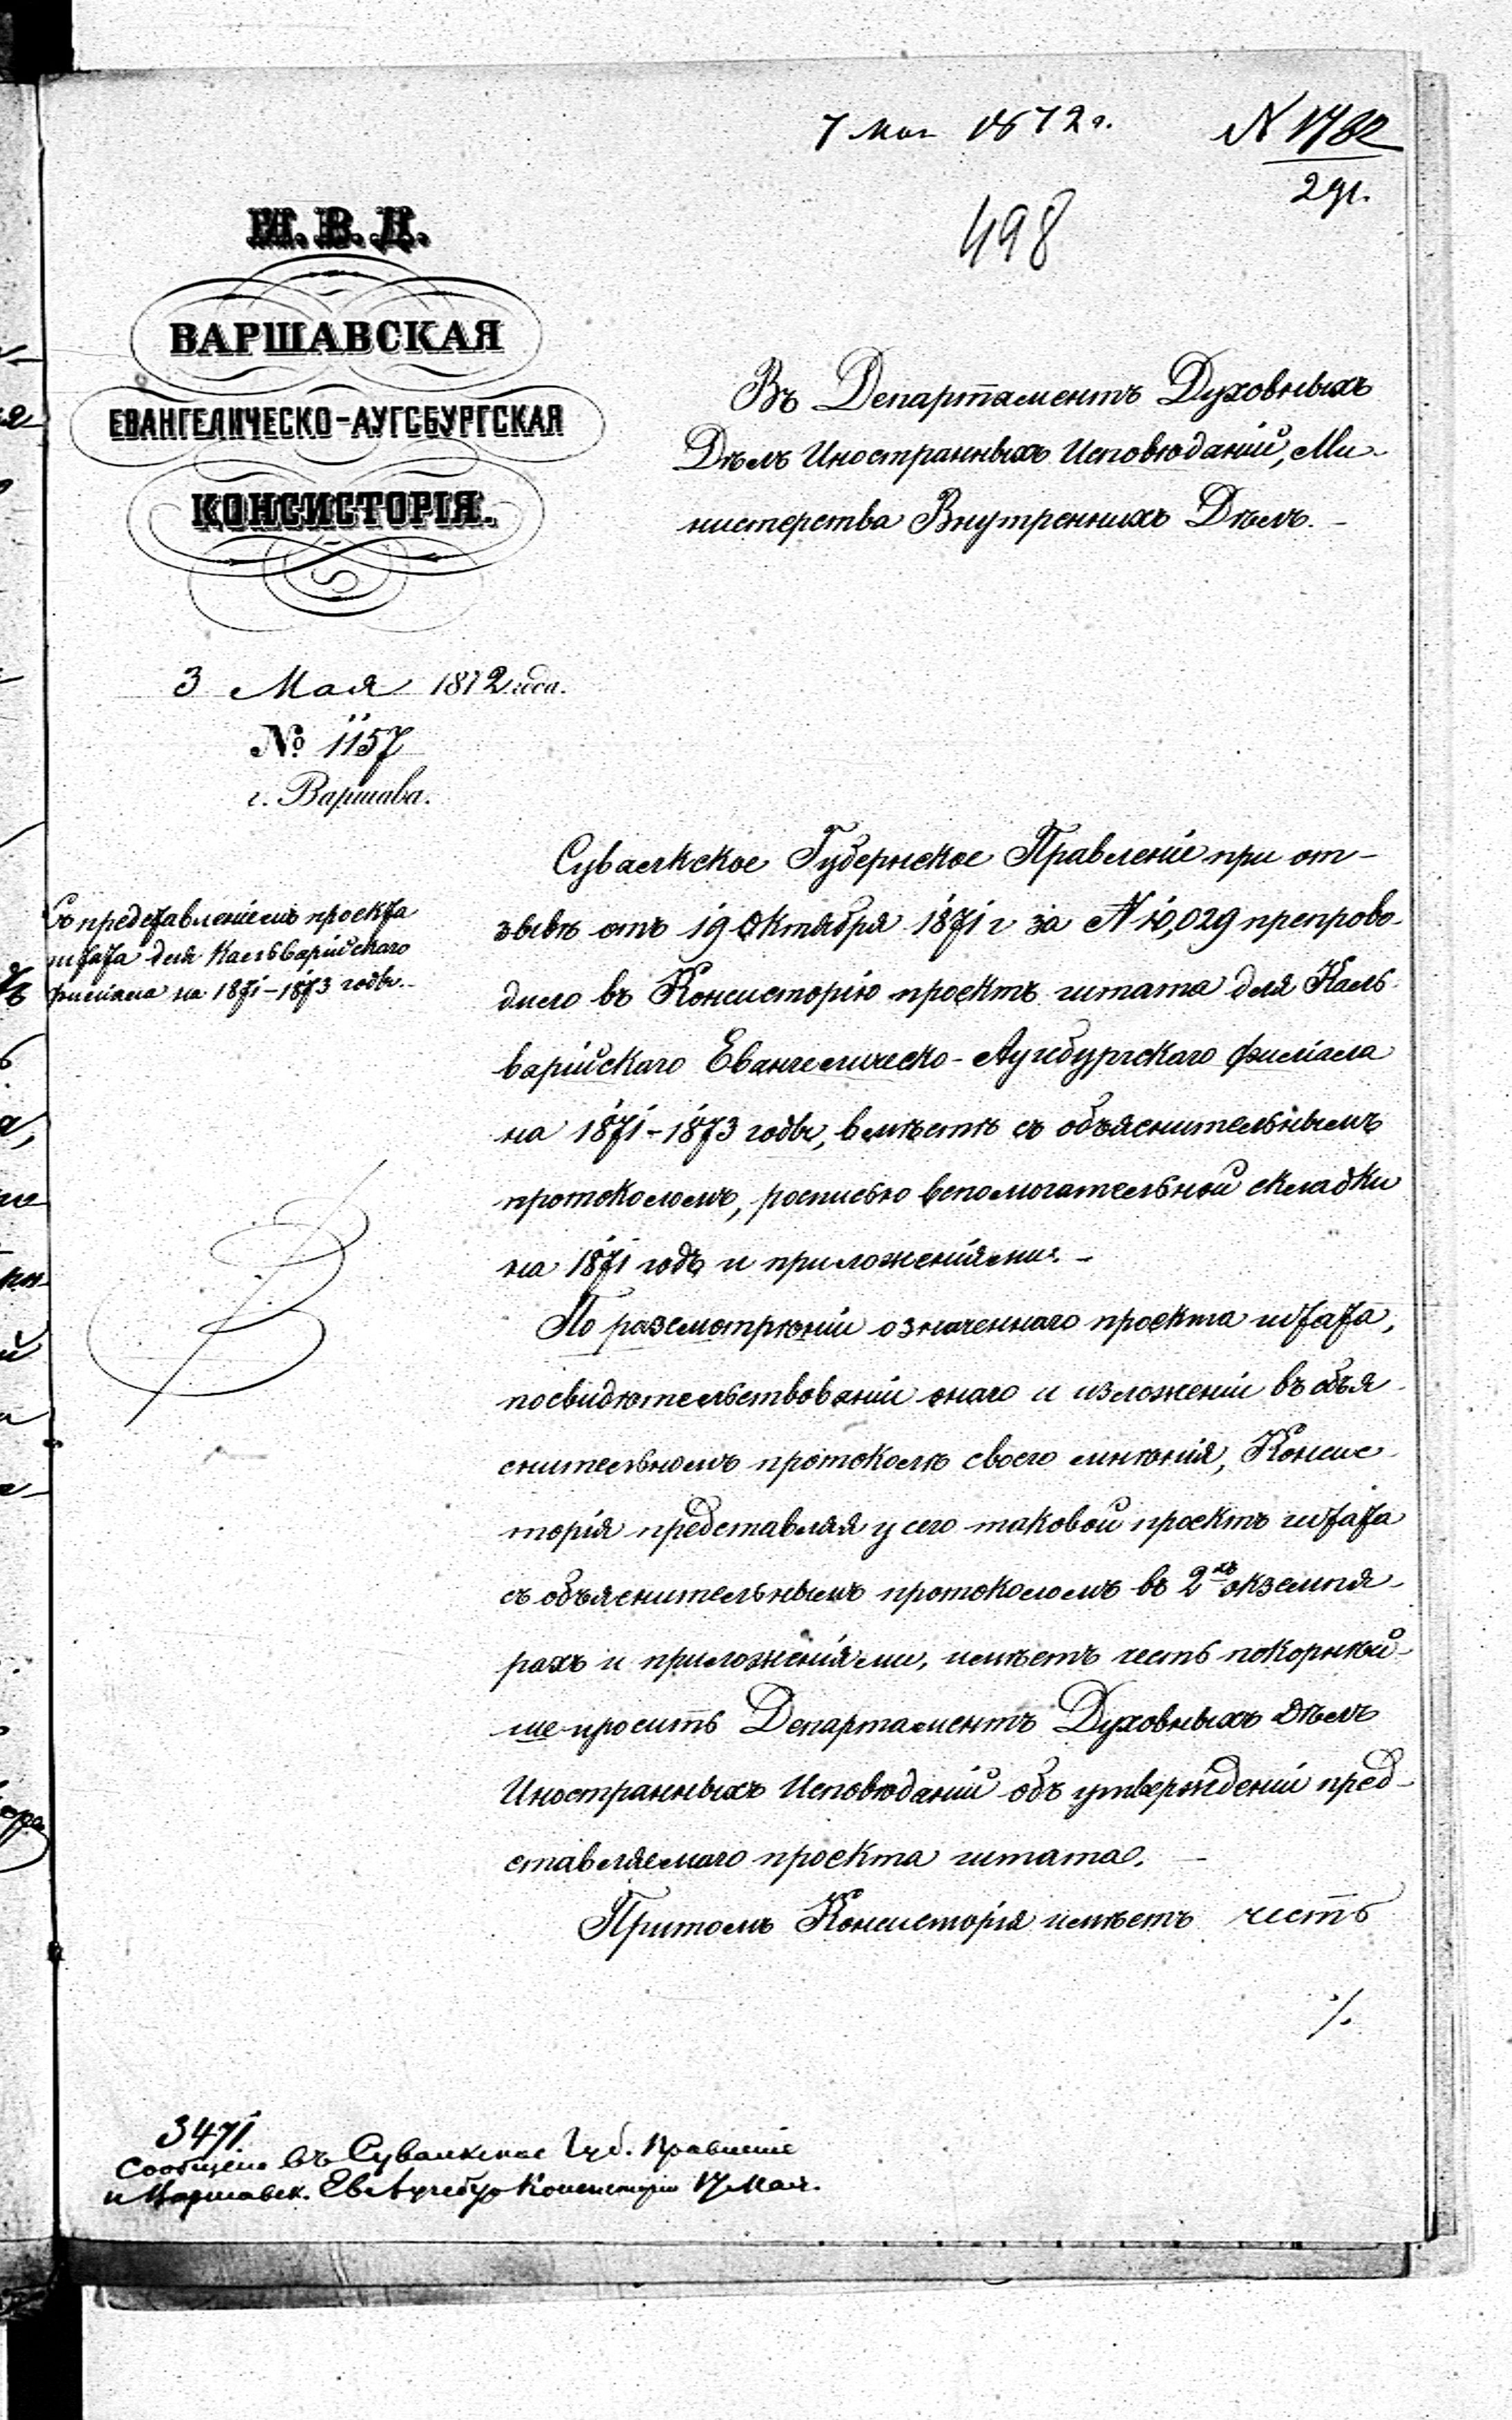 7 мая 1872 г.
№ 1782
2 ди.
498
М. В. Д.
ВАРШАВСКАЯ
ЕВАНГЕЛИЧЕСКО-АУГСБУРГСКАЯ
КОНСИСТОРІЯ.
Въ Департаментъ Духовныхъ
Дѣлъ Иностранныхъ Исповѣданій, Ми-
нистерства Внутреннихъ Дѣлъ. -
3 Мая 1872 года.
№ 1157
г. Варшава.
Съ представленіемъ проекта
штата для Кальварійскаго
филіала на 1871-1873 годы. -
Сувалкское Губернское Правленіе при от-
зывѣ отъ 19 Октября 1871 г за № 10,029 препрово-
дило въ Консисторію проектъ штата для Каль-
варійскаго Евангелическо-Аугсбургскаго филіала
на 1871-1873 годы, вмѣстѣ съ объяснительнымъ
протоколомъ, росписью вспомогательной складки
на 1871 годъ и приложеніями. -
По разсмотрѣніи означеннаго проекта штата,
посвидѣтельствованіи онаго и изложеніи въ объя-
снительномъ протоколѣ своего мнѣнія, Консис-
торія представляя у сего таковой проектъ штата
съ объяснительнымъ протоколомъ въ 2хъ экземпля-
рахъ и приложеніями, имѣетъ честь покорнѣй-
ше просить Департаментъ Духовныхъ Дѣлъ
Иностранныхъ Исповѣданій объ утвержденіи пред-
ставляемаго проекта штата. -
Притомъ Консисторія имѣетъ честь
./.
3471
Сообщено въ Сувалкское Губ. Правленіе
и Варшавск. Ев Аугсбур Консисторію 17 Мая.